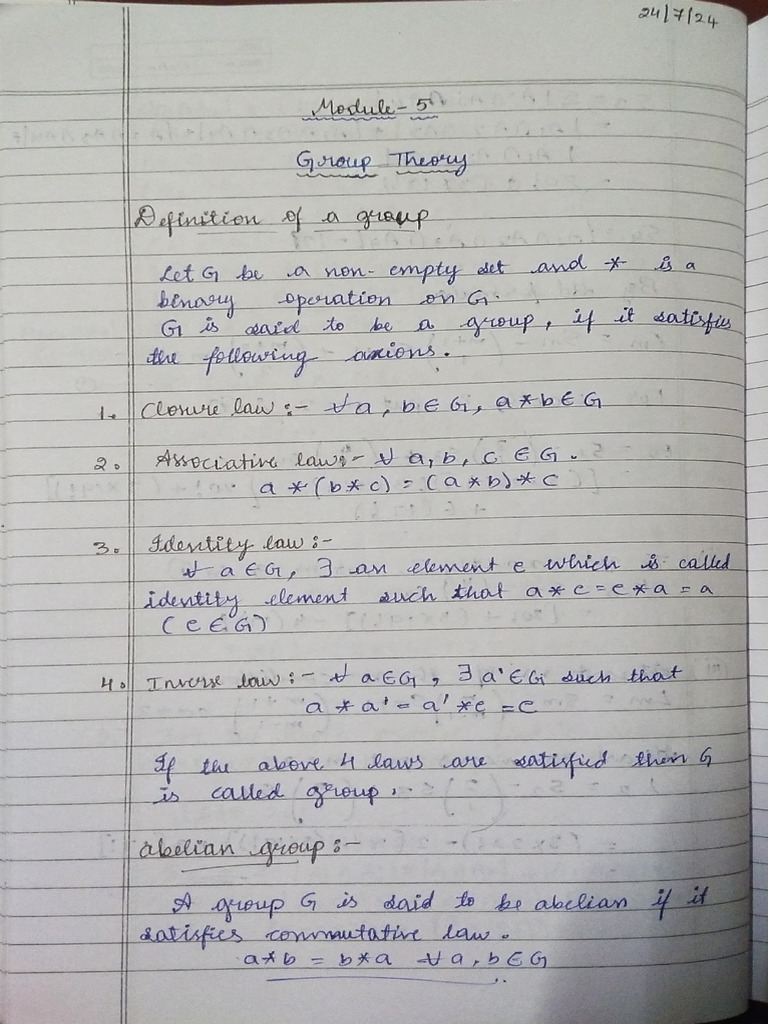 24/7/24
Module - 5
Group Theory
Definition of a group
Let G be a non-empty set and * is a
binary operation on G.
G is said to be a group, if it satisfies
the following axions.
1. Closure law :- ∀ a, b ∈ G, a * b ∈ G
2. Associative law :- ∀ a, b, c ∈ G.
a * (b * c) = (a * b) * c
3. Identity law :-
∀ a ∈ G, ∃ an element e which is called
identity element such that a * e = e * a = a
(e ∈ G)
4. Inverse law :- ∀ a ∈ G, ∃ a' ∈ G such that
a * a' = a' * e = e
If the above 4 laws are satisfied then G
is called group.
Abelian group :-
A group G is said to be abelian if it
satisfies commutative law.
a * b = b * a ∀ a, b ∈ G